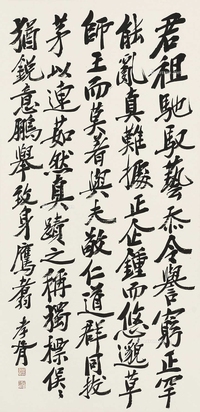 君祖馳馭藝忝令譽窮正罕
能亂真難據正企鍾而悠邈草
師王而莫著與夫敬仁道群同拔
茅以連茹然真蹟之稱獨標俟々
猶銳意鵬舉致身鷹翥 孝胥